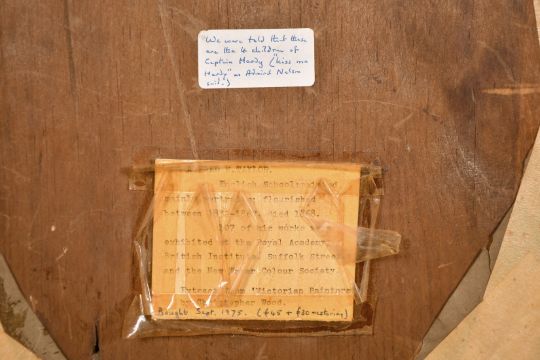 "We were told that these
are the 4 children of
Captain Hardy ("kiss me
Hardy" as Admiral Nelson
said.)
English School
mainly portraits; flourished
between died 1868.
107 of his works
exhibited at the Royal Academy,
British Institute, Suffolk Street
and the New Water Colour Society.
Extract from 'Victorian Painters'
Christopher Wood.
Bought Sept. 1975. (£45 + £30 restoring)